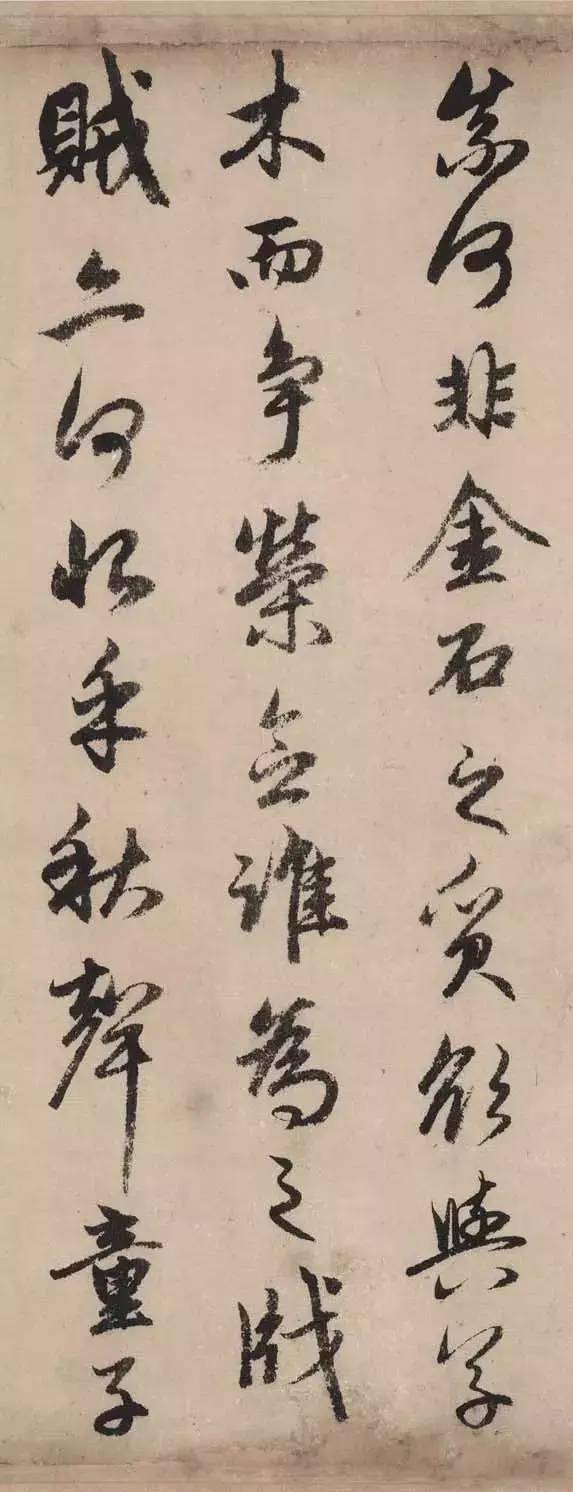 奈何非金石之質欲與草
木而争榮念誰為之戕
賊亦何恨乎秋聲童子